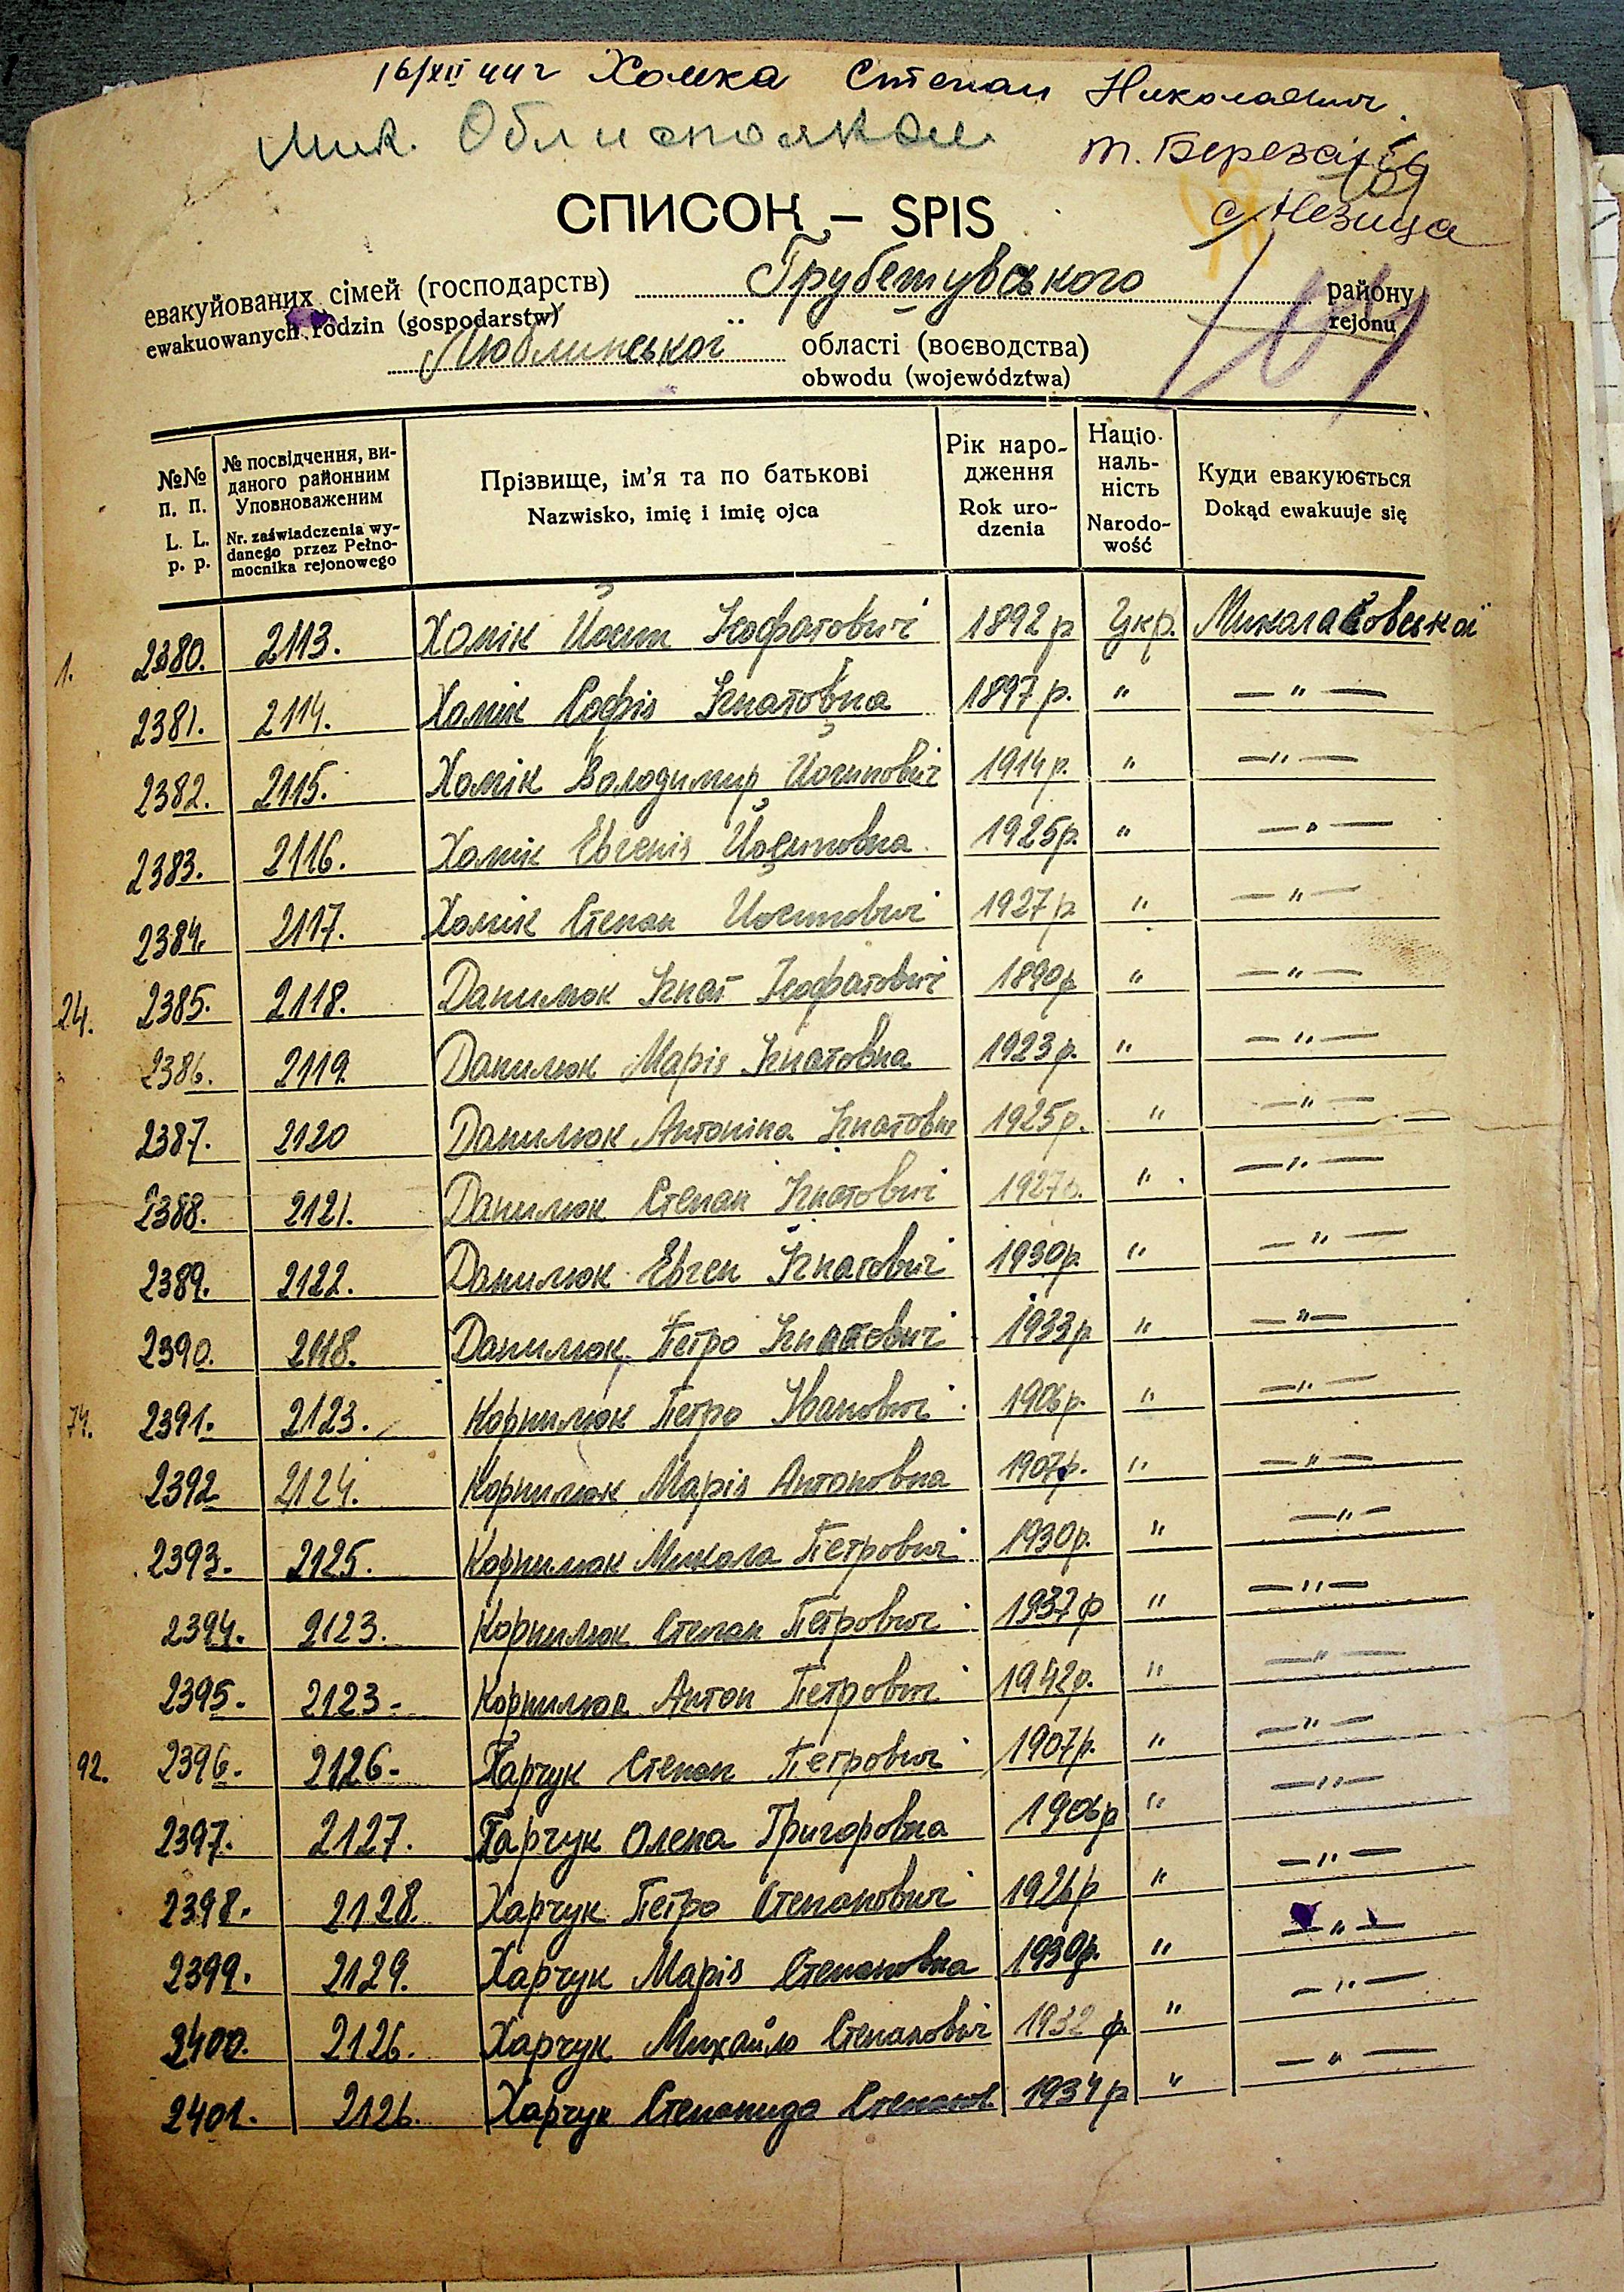 16/XII 44 г Хомка Степан Николаевич
Мик. Облисполком
т. Береза
с. Незица
СПИСОК — SPIS
евакуйованих сімей (господарств) Грубешувського району
ewakuowanych rodzin (gospodarstw) rejonu
Люблинської області (воєводства)
obwodu (województwa)
101
№№ п. п. L. L. p. p. № посвідчення, виданого районним Уповноваженим Nr. zaświadczenia wydanego przez Pełnomocnika rejonowego Прізвище, ім'я та по батькові Nazwisko, imię i imię ojca Рік народження Rok urodzenia Національність Narodowość Куди евакуюється Dokąd ewakuuje się
1. 2380. 2113. Хомік Йосип Йософатович 1892 р Укр. Миколаєовської
2381. 2114. Хомік Софія Ігнатовна 1897 р. " — " —
2382. 2115. Хомік Володимир Йосипович 1914 р. " — " —
2383. 2116. Хомік Евгенія Йосиповна 1925 р. " — " —
2384. 2117. Хомік Степан Йосипович 1927 р " — " —
24. 2385. 2118. Данилюк Ігнат Йософатович 1890 р " — " —
2386. 2119. Данилюк Марія Ігнатовна 1923 р. " — " —
2387. 2120 Данилюк Антоніна Ігнатовн 1925 р. " — " —
2388. 2121. Данилюк Степан Ігнатович 1927 р. " — " —
2389. 2122. Данилюк Евген Ігнатович 1930 р. " — " —
2390. 2118. Данилюк Петро Ігнатович 1933 р " — " —
74. 2391. 2123. Корнилюк Петро Іванович 1906 р. " — " —
2392 2124. Корнилюк Марія Антоновна 1907 р. " — " —
2393. 2125. Корнилюк Микола Петрович 1930 р. " — " —
2394. 2123. Корнилюк Степан Петрович 1937 р " — " —
2395. 2123. Корнилюк Антон Петрович 1942 р. " — " —
92. 2396. 2126. Харчук Степан Петрович 1907 р. " — " —
2397. 2127. Харчук Олена Григоровна 1906 р " — " —
2398. 2128. Харчук Петро Степанович 1926 р " — " —
2399. 2129. Харчук Марія Степановна 1930 р. " — " —
2400. 2126. Харчук Михайло Степанович 1932 р. " — " —
2401. 2126. Харчук Степанида Степанов 1934 р " — " —